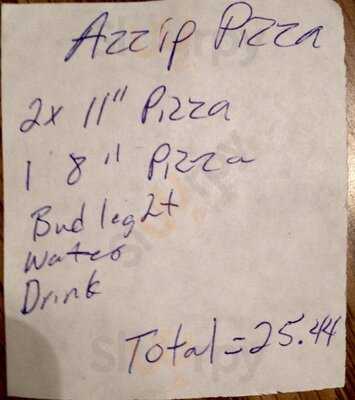 Azzip Pizza
2x 11" Pizza
1 8" Pizza
Bud leg2t
Water
Drink
Total = 25.44